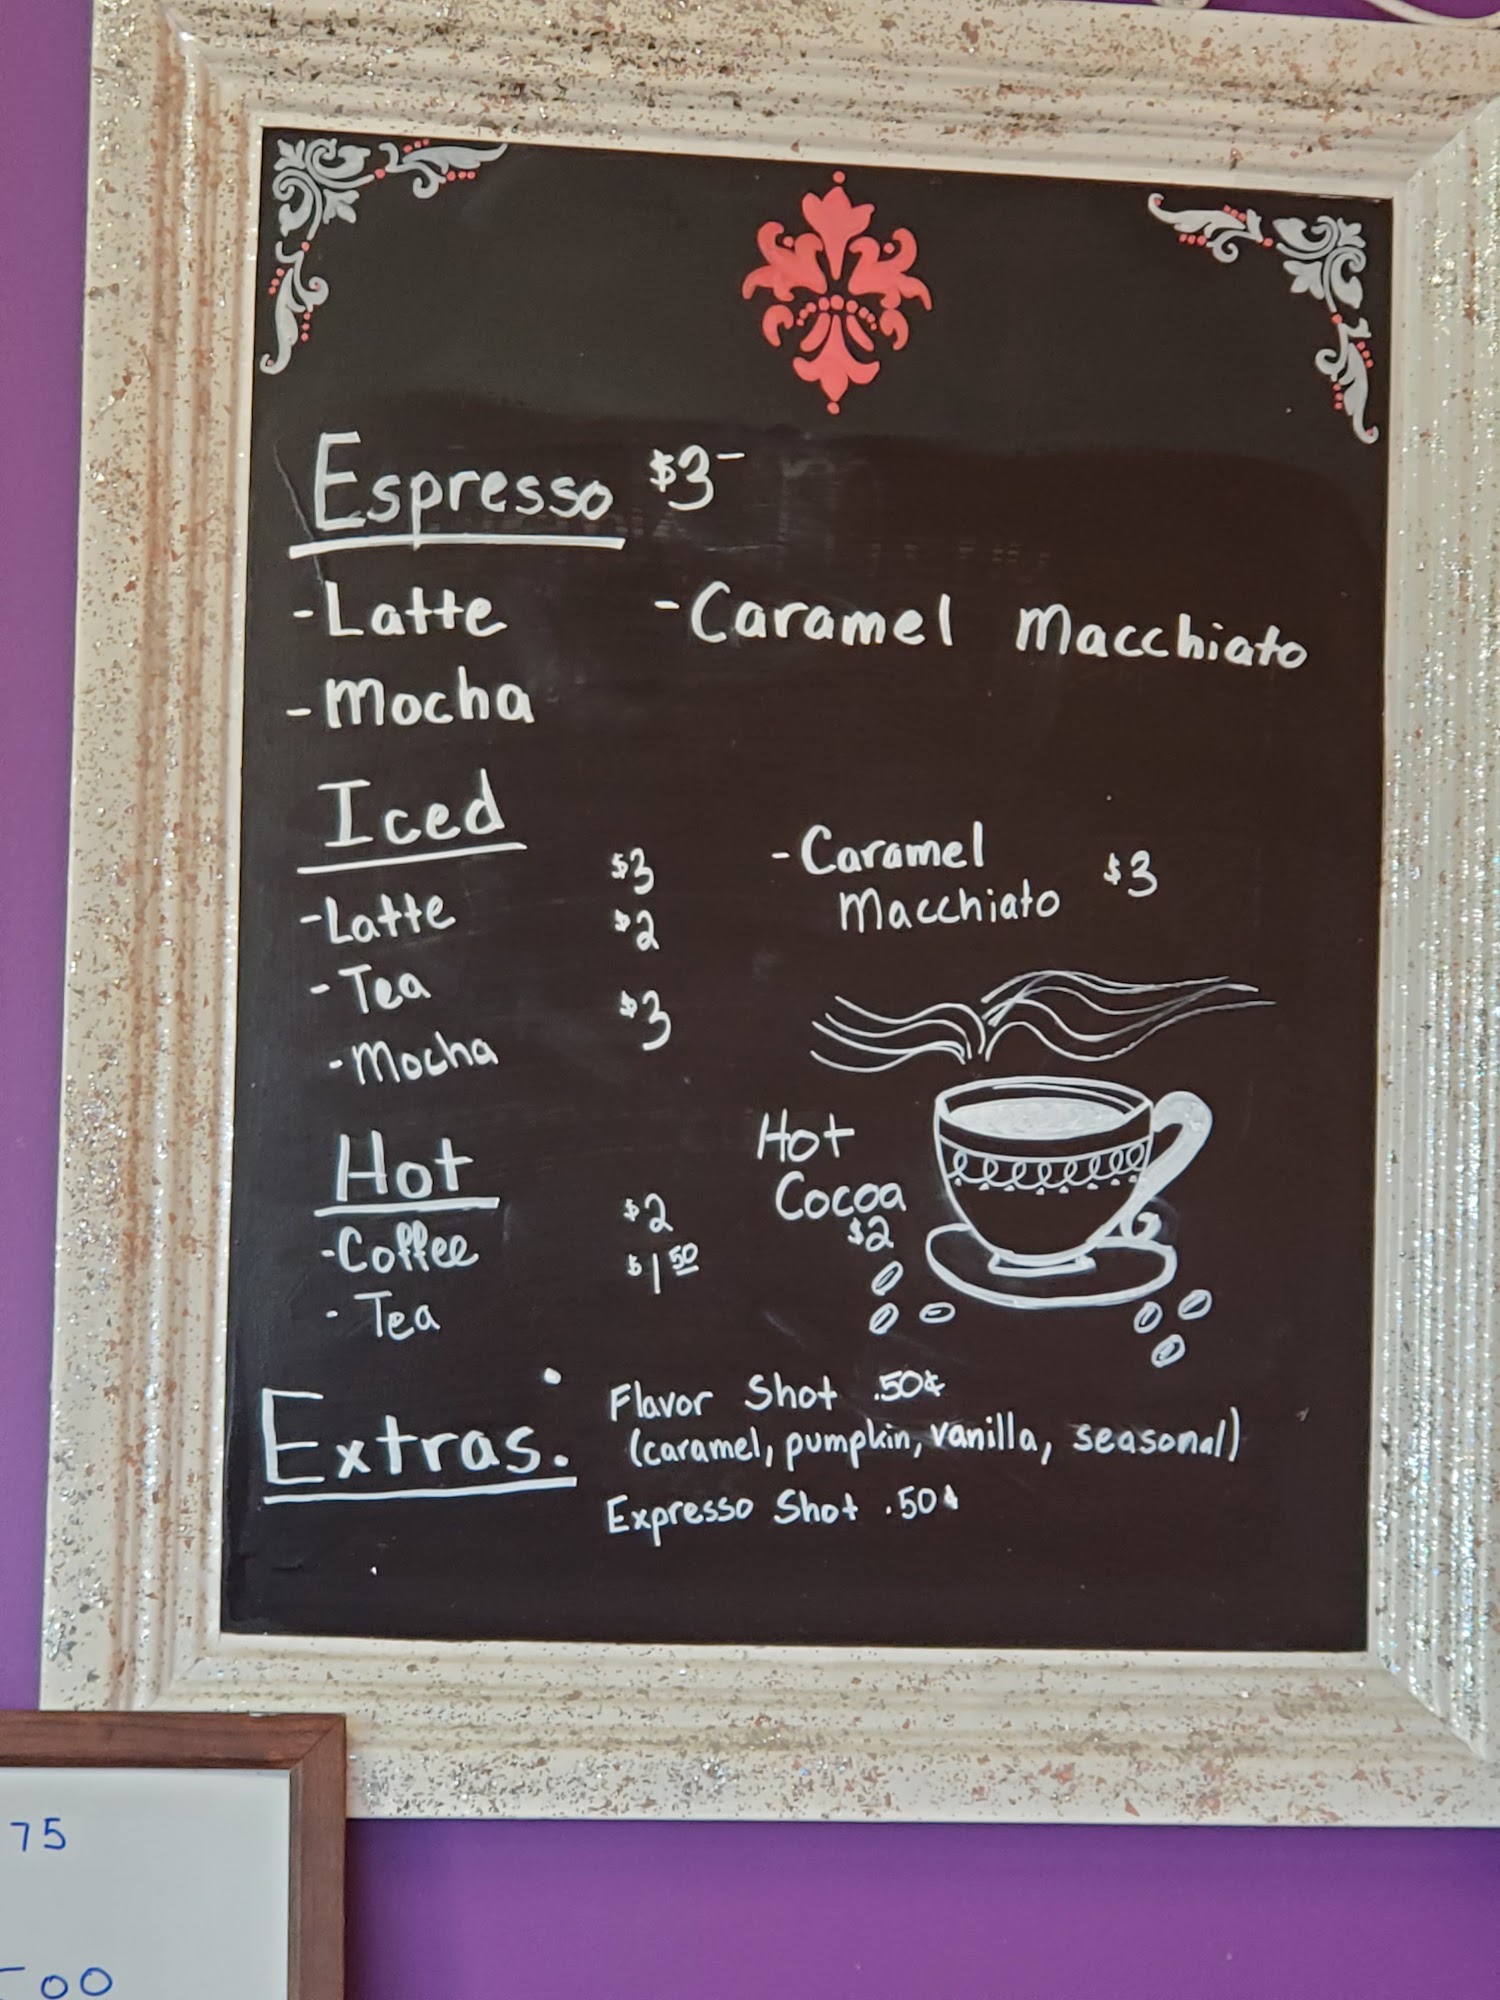 Espresso $3-
-Latte -Caramel Macchiato
-Mocha
Iced
-Latte $3
-Tea $2
-Mocha $3
-Caramel
Macchiato $3
Hot
-Coffee $2
-Tea $1 50
Hot
Cocoa
$2
Extras.
Flavor Shot .50¢
(caramel, pumpkin, vanilla, seasonal)
Expresso Shot .50¢
75
500